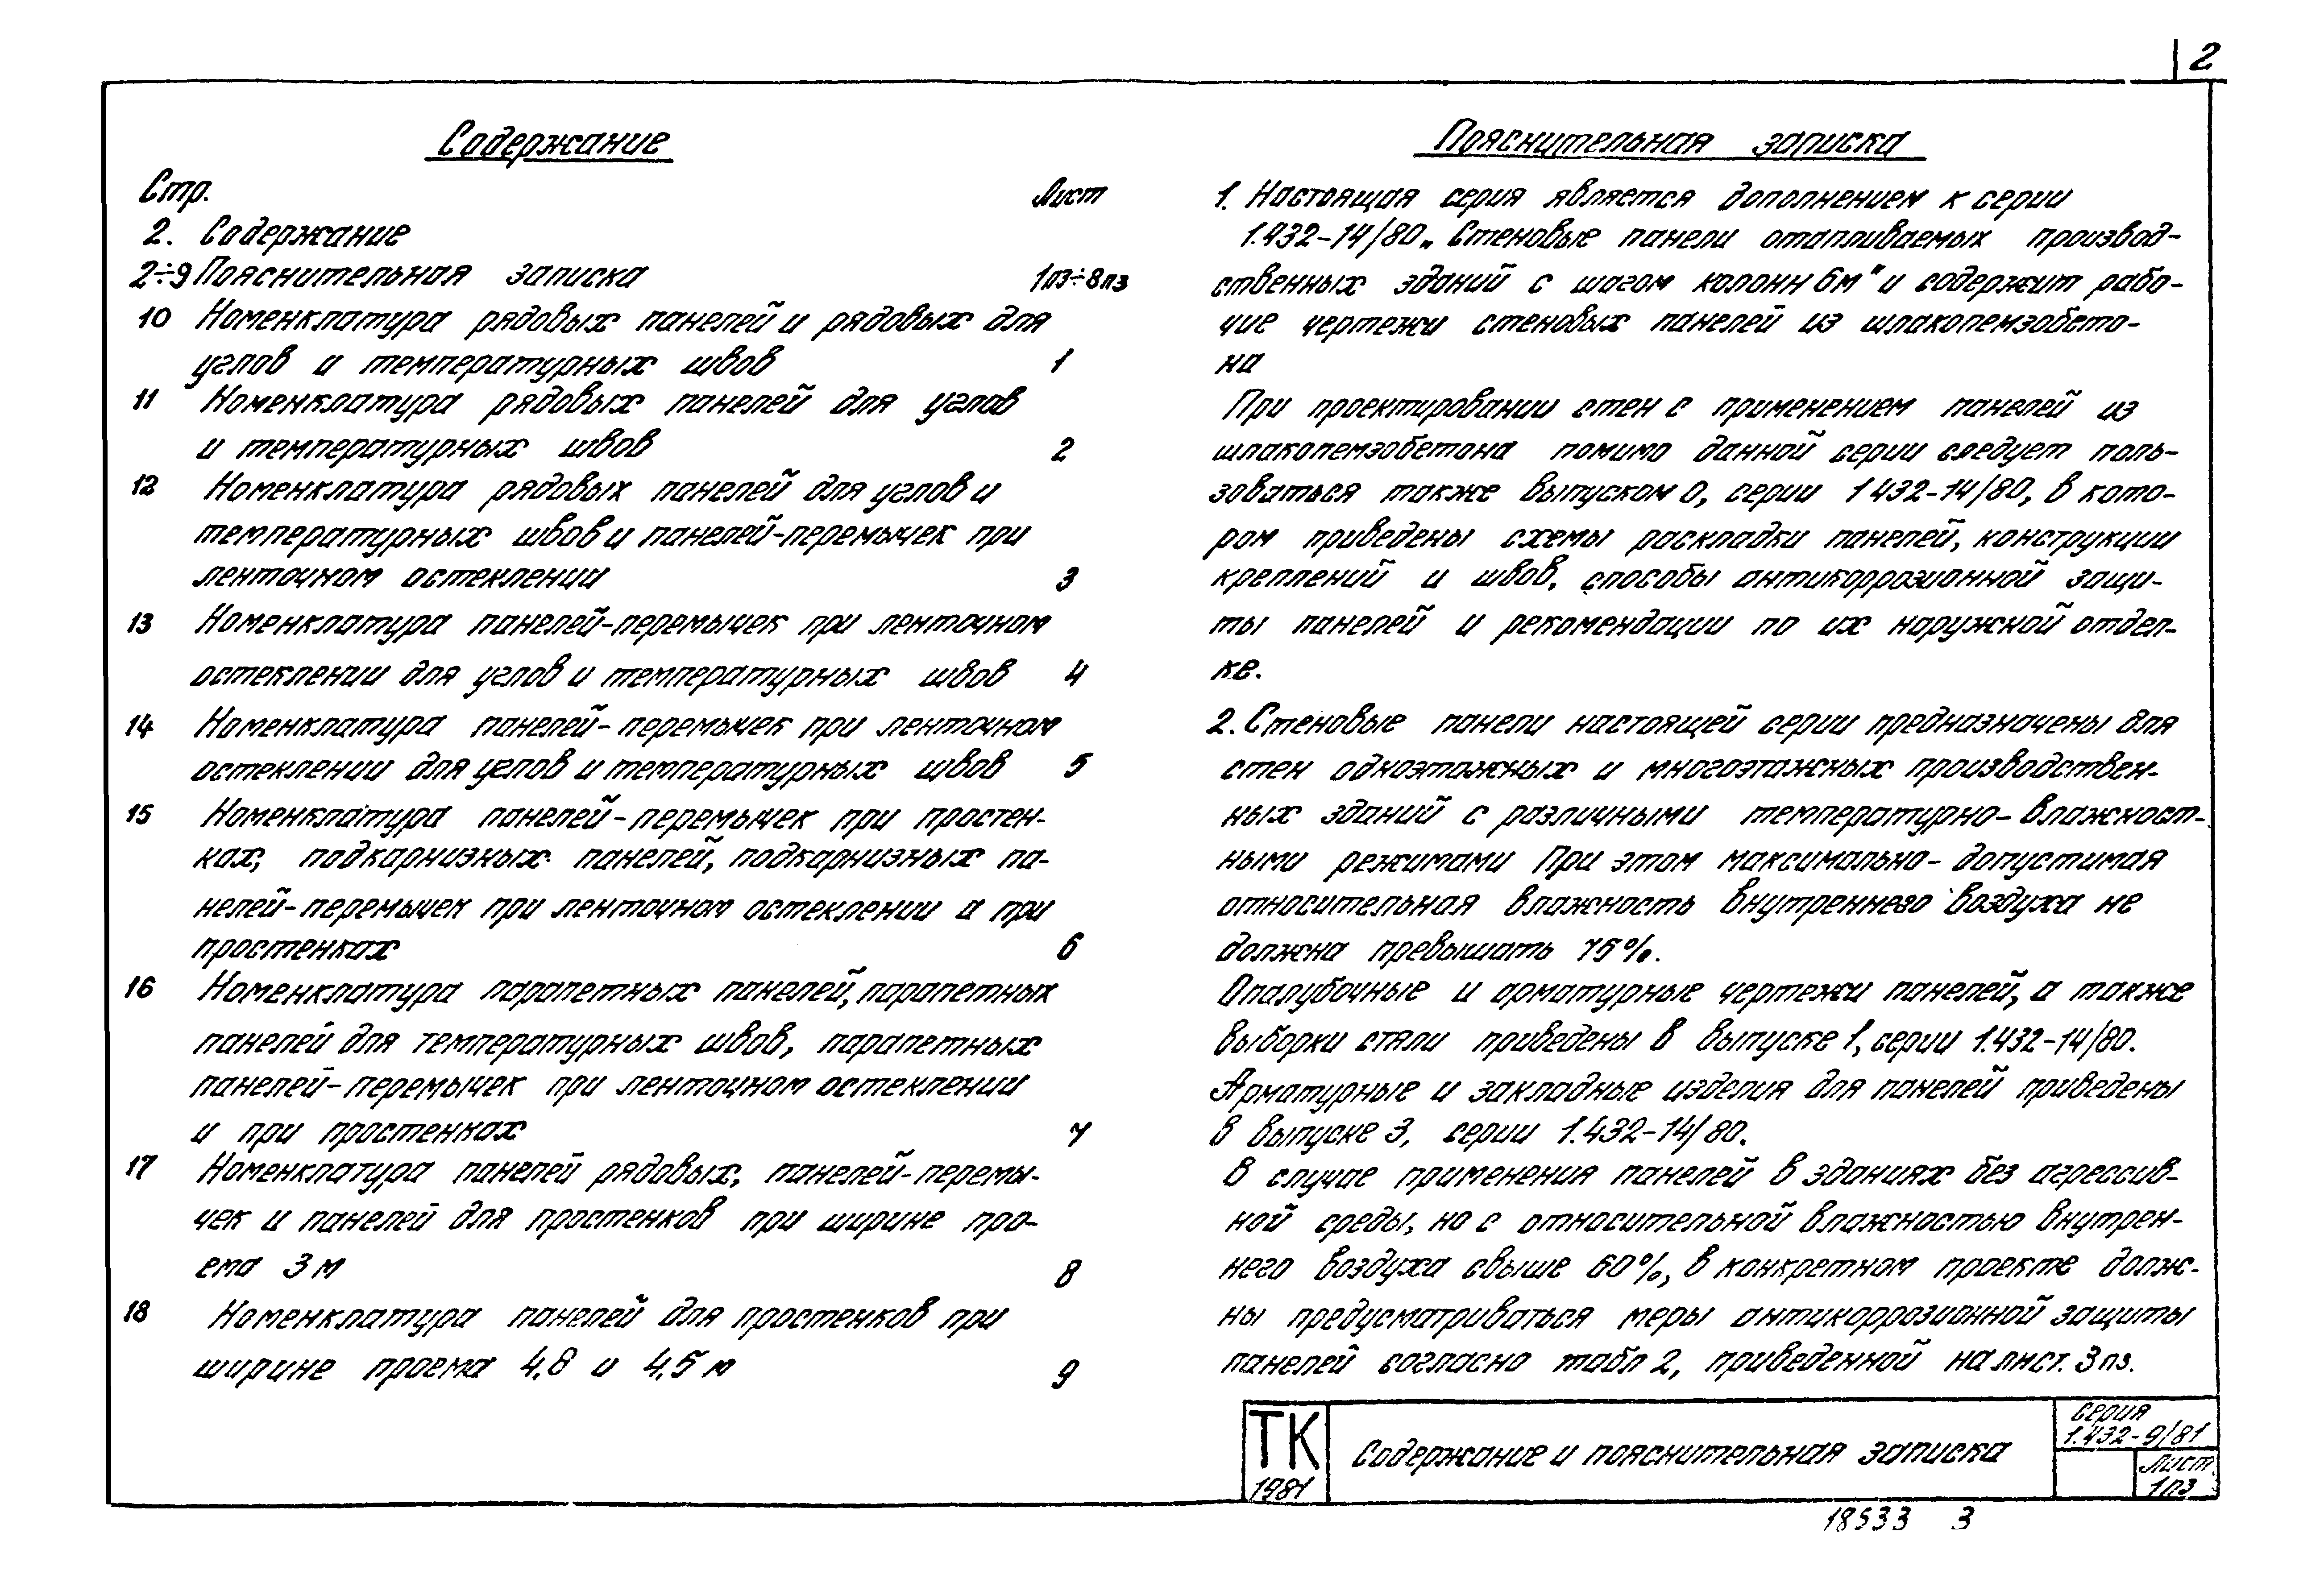 2
Содержание
Стр. Лист
2. Содержание
2÷9 Пояснительная записка 1пз÷8пз
10 Номенклатура рядовых панелей и рядовых для
углов и температурных швов 1
11 Номенклатура рядовых панелей для углов
и температурных швов 2
12 Номенклатура рядовых панелей для углов и
температурных швов и панелей-перемычек при
ленточном остеклении 3
13 Номенклатура панелей-перемычек при ленточном
остеклении для углов и температурных швов 4
14 Номенклатура панелей-перемычек при ленточном
остеклении для углов и температурных швов 5
15 Номенклатура панелей-перемычек при простен-
ках, подкарнизных панелей, подкарнизных па-
нелей-перемычек при ленточном остеклении и при
простенках 6
16 Номенклатура парапетных панелей, парапетных
панелей для температурных швов, парапетных
панелей-перемычек при ленточном остеклении
и при простенках 7
17 Номенклатура панелей рядовых, панелей-перемы-
чек и панелей для простенков при ширине про-
ема 3м 8
18 Номенклатура панелей для простенков при
ширине проема 4,8 и 4,5 м 9
Пояснительная записка
1. Настоящая серия является дополнением к серии
1.432-14/80 „Стеновые панели отапливаемых производ-
ственных зданий с шагом колонн 6м" и содержит рабо-
чие чертежи стеновых панелей из шлакопемзобето-
на
При проектировании стен с применением панелей из
шлакопемзобетона помимо данной серии следует поль-
зоваться также выпуском 0, серии 1 432-14/80, в кото-
ром приведены схемы раскладки панелей, конструкции
креплений и швов, способы антикоррозионной защи-
ты панелей и рекомендации по их наружной отдел-
ке.
2. Стеновые панели настоящей серии предназначены для
стен одноэтажных и многоэтажных производствен-
ных зданий с различными температурно-влажност-
ными режимами При этом максимально-допустимая
относительная влажность внутреннего воздуха не
должна превышать 75%.
Опалубочные и арматурные чертежи панелей, а также
выборки стали приведены в выпуске 1, серии 1.432-14/80.
Арматурные и закладные изделия для панелей приведены
в выпуске 3, серии 1.432-14/80.
В случае применения панелей в зданиях без агрессив-
ной среды, но с относительной влажностью внутрен-
него воздуха свыше 60%, в конкретном проекте долж-
ны предусматриваться меры антикоррозионной защиты
панелей согласно табл 2, приведенной на лист. 3пз.
ТК
1981
Содержание и пояснительная записка
серия
1.432-9/81
Лист
1пз
18533 3